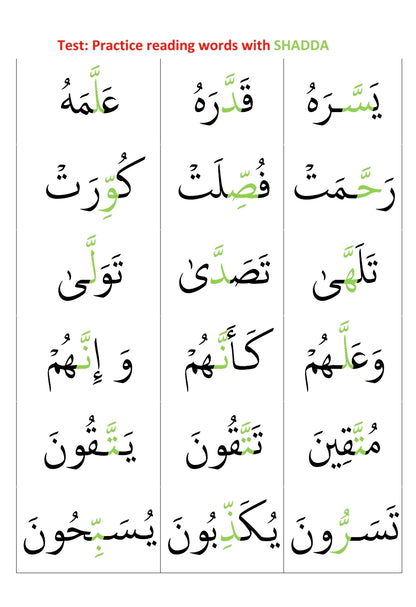 Test: Practice reading words with SHADDA
يَسَّـرَهُ قَدَّرَهُ عَلَّمَهُ
رَحَّـمَتْ فُصِّلَتْ كُوِّرَتْ
تَلَهَّـىٰ تَصَدَّىٰ تَوَلَّـىٰ
وَعَلَّـهُمْ كَأَنَّـهُمْ وَ إِنَّـهُمْ
مُتَّقِينَ تَتَّقُونَ يَـتَّـقُونَ
تَسَـرُّونَ يُكَذِّبُونَ يُسَـبِّـحُونَ